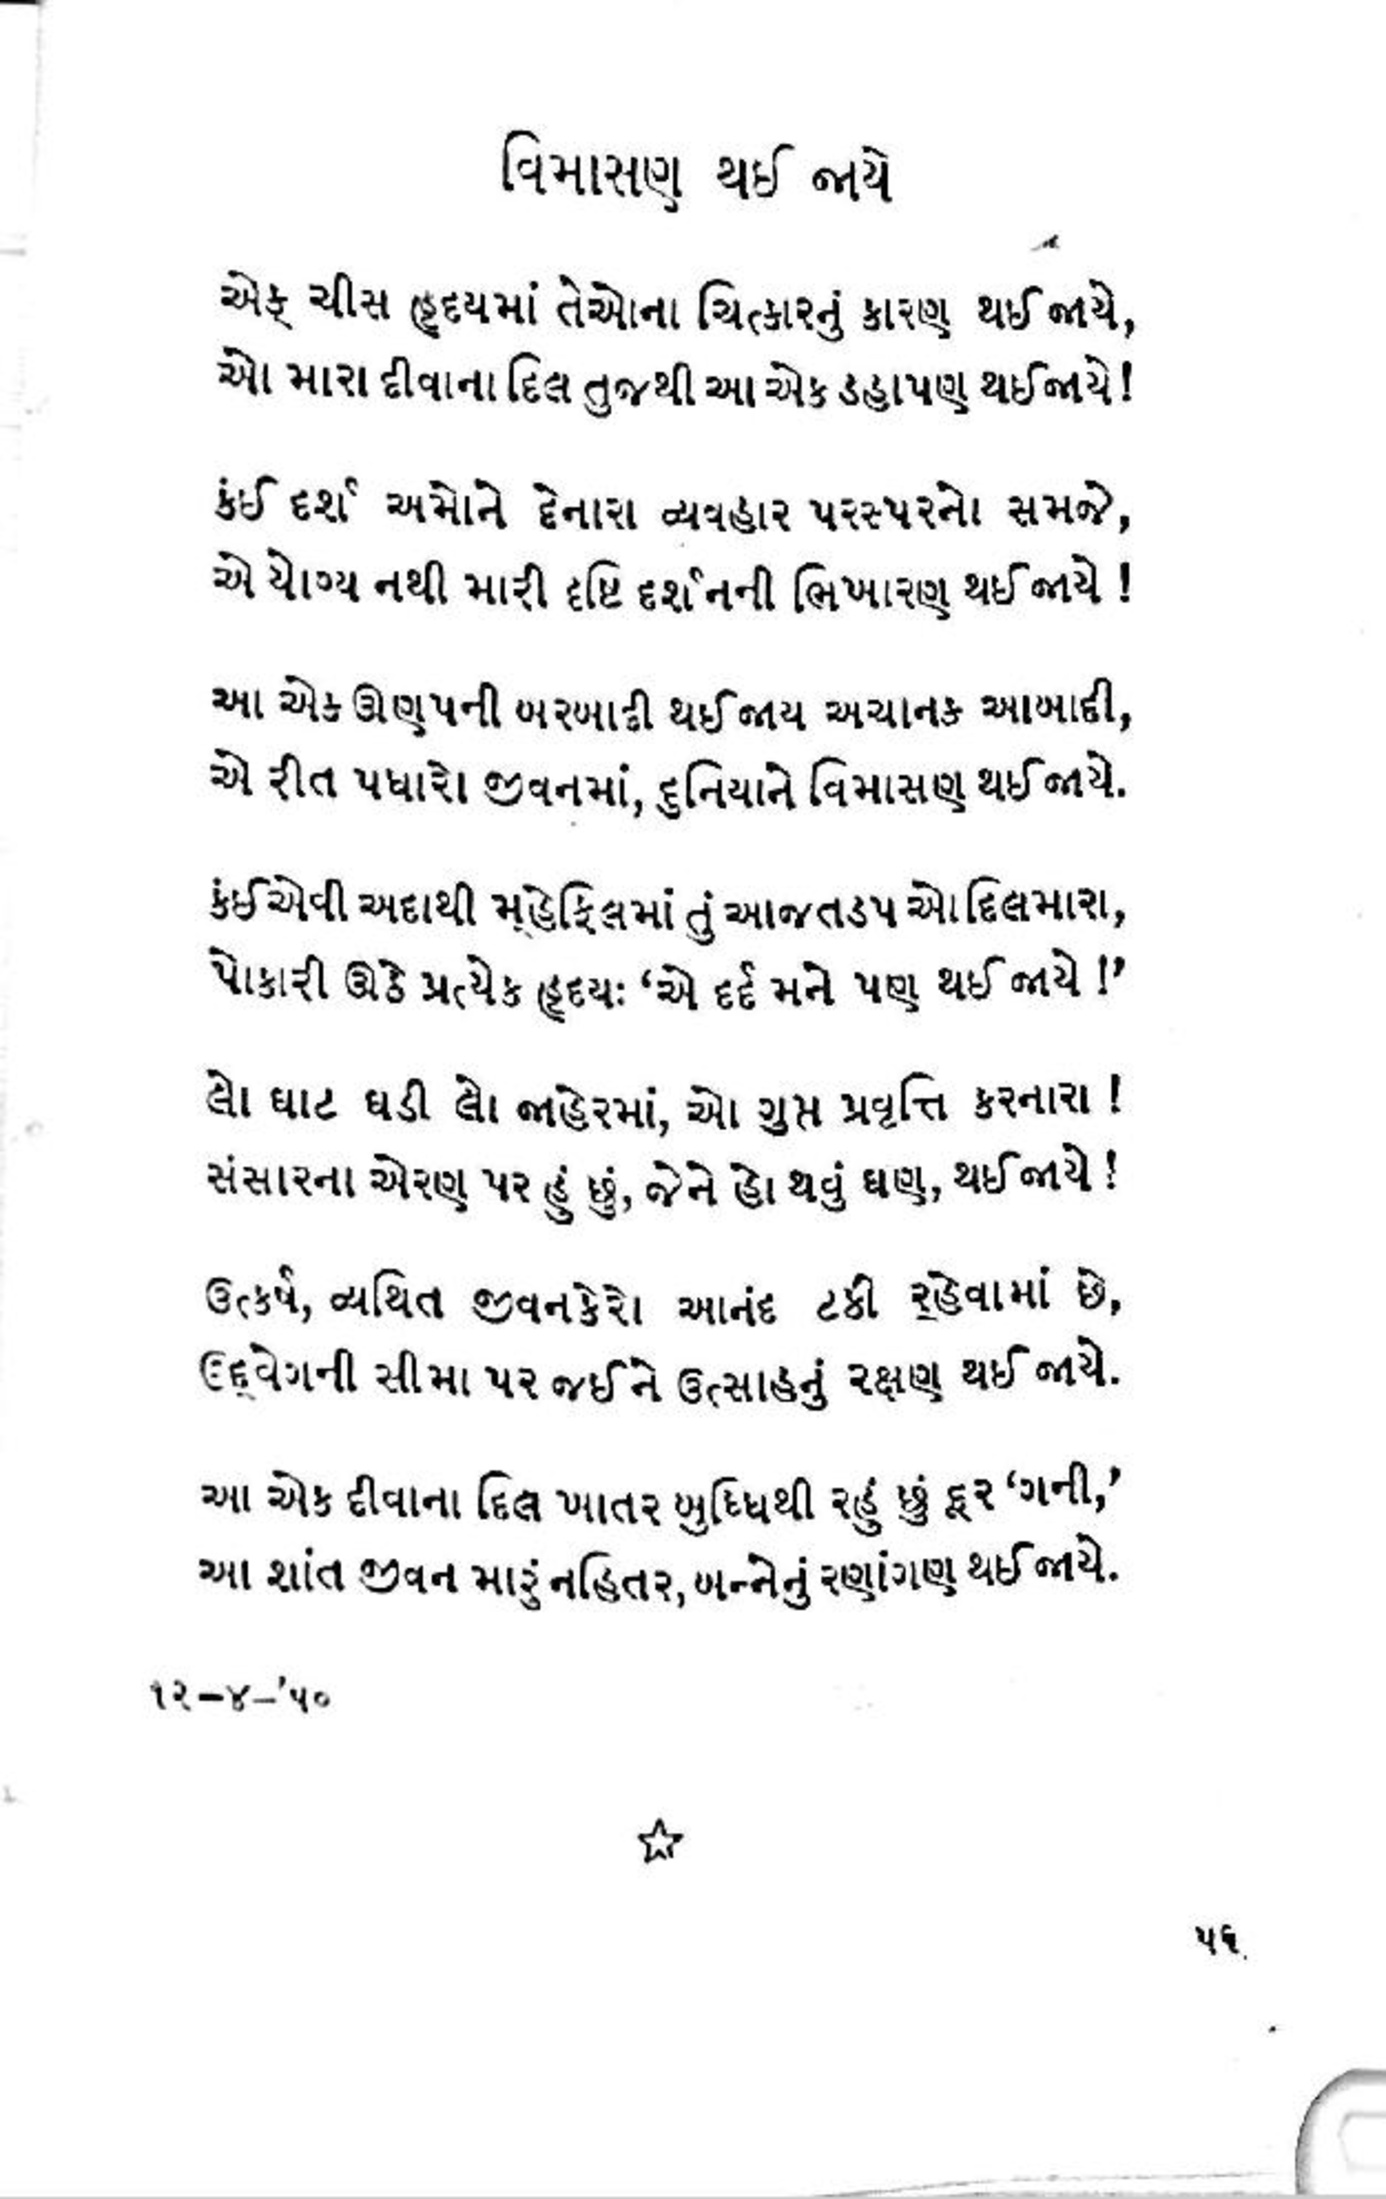 વિમાસણ થઈ જાયે
એક્ ચીસ હૃદયમાં તેઓના ચિત્કારનું કારણ થઈ જાયે,
ઓ મારા દીવાના દિલ તુજથી આ એક ડહાપણ થઈ જાયે!
કંઈ દર્શ અમોને દેનારા વ્યવહાર પરસ્પરનો સમજે,
એ યોગ્ય નથી મારી દૃષ્ટિ દર્શનની ભિખારણ થઈ જાયે !
આ એક ઊણપની બરબાદી થઈ જાય અચાનક આબાદી,
એ રીત પધારો જીવનમાં, દુનિયાને વિમાસણ થઈ જાયે.
કંઈ એવી અદાથી મ્હેફિલમાં તું આજ તડપ ઓ દિલ મારા,
પોકારી ઊઠે પ્રત્યેક હૃદયઃ ‘એ દર્દ મને પણ થઈ જાયે !’
લો ઘાટ ઘડી લો જાહેરમાં, ઓ ગુપ્ત પ્રવૃત્તિ કરનારા !
સંસારના એરણ પર હું છું, જેને હો થવું ઘણ, થઈ જાયે !
ઉત્કર્ષ, વ્યથિત જીવનકેરો આનંદ ટકી ર્‌હેવામાં છે,
ઉદ્‌વેગની સીમા પર જઈને ઉત્સાહનું રક્ષણ થઈ જાયે.
આ એક દીવાના દિલ ખાતર બુધ્ધિથી રહું છું દૂર ‘ગની,’
આ શાંત જીવન મારું નહિતર, બન્નેનું રણાંગણ થઈ જાયે.
૧૨–૪–’૫૦
૫૬